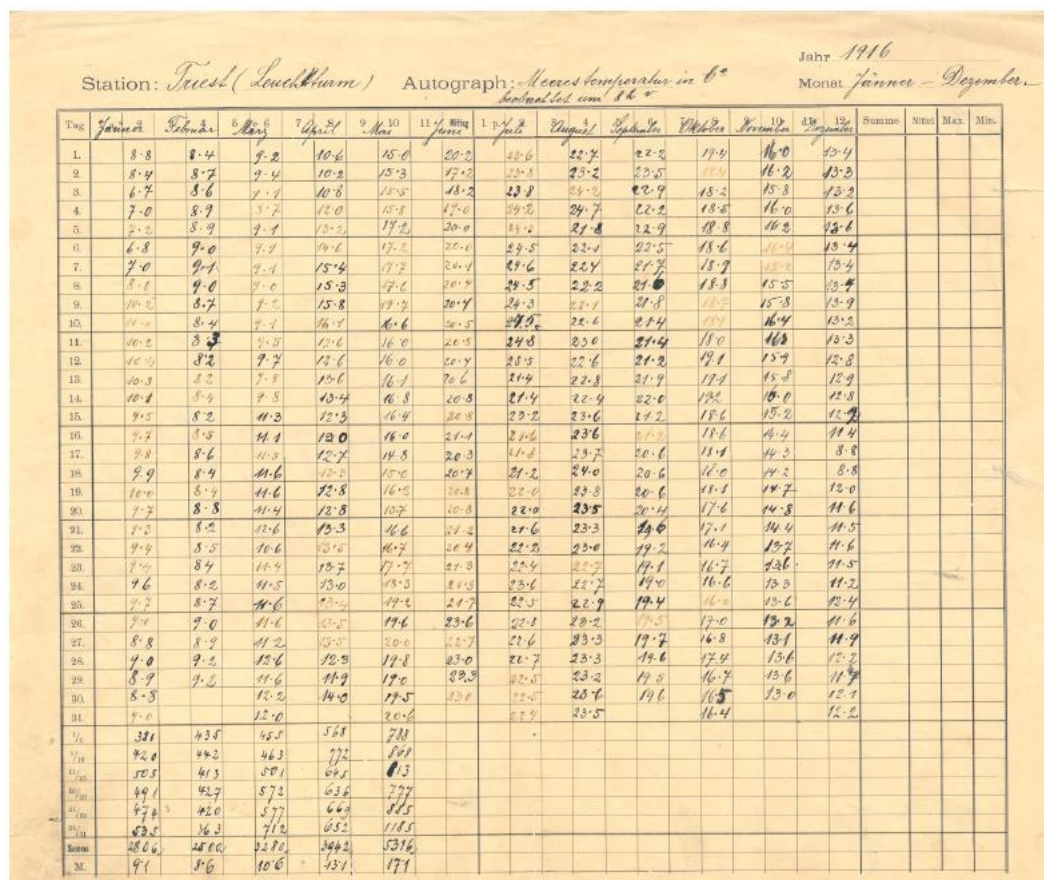 Jahr 1916
Station: Triest (Leuchtturm) Autograph: Meerestemperatur in C° Monat Jänner - Dezember.
beobachtet um 8h v
Tag Jänner Februar März April Mai Juni Juli August September Oktober November Dezember Summe Mittel Max. Min.
1. 8.8 8.4 9.2 10.6 15.0 20.2 23.6 22.7 22.2 19.4 16.0 13.4
2. 8.4 8.7 9.4 10.2 15.3 17.2 23.8 23.2 23.5 16.2 13.3
3. 6.7 8.6 9.1 10.8 15.5 18.2 23.8 24.2 22.9 18.2 15.8 13.2
4. 7.0 8.9 12.0 15.8 19.0 24.2 24.7 22.2 18.5 16.0 13.6
5. 7.2 8.9 9.1 13.2 17.2 20.0 21.8 22.9 18.8 16.2 13.6
6. 6.8 9.0 9.1 14.6 17.2 20.0 24.5 22.1 22.5 18.6 13.4
7. 7.0 9.1 9.1 15.4 17.7 20.1 24.6 22.4 21.7 18.9 13.4
8. 8.0 9.0 9.0 15.3 17.6 20.4 24.5 22.2 21.6 18.8 15.5
9. 10.2 8.7 9.2 15.8 19.7 20.4 24.3 22.1 21.8 18.7 15.8 13.9
10. 8.4 9.1 16.1 16.6 20.5 24.5 22.6 21.4 16.4 13.2
11. 10.2 8.3 9.5 12.6 16.0 20.5 24.8 23.0 21.4 18.0 13.3
12. 8.2 9.7 12.6 16.0 20.4 23.5 22.6 21.2 19.1 15.9 12.8
13. 10.3 8.2 9.8 13.6 16.1 20.6 21.4 22.8 21.9 19.1 15.8 12.9
14. 10.1 8.4 9.8 13.4 16.8 20.8 21.4 22.4 22.0 19.2 12.8
15. 9.5 8.2 11.3 12.3 16.4 20.8 23.2 23.6 21.2 18.6 15.2 12.9
16. 9.7 8.5 11.1 12.0 16.0 21.1 21.6 23.6 21.2 18.6 14.4 11.4
17. 9.8 8.6 11.3 12.7 14.8 20.3 21.8 23.7 20.6 18.1 14.3 8.8
18. 9.9 8.4 11.6 12.3 15.0 20.7 21.2 24.0 20.6 18.0 14.2 8.8
19. 10.0 8.4 11.6 12.8 16.2 20.8 22.0 23.8 20.6 18.1 14.7 12.0
20. 9.7 8.8 11.4 12.8 15.7 20.8 22.0 23.5 20.4 17.6 14.8 11.6
21. 9.3 8.2 12.6 13.3 16.6 21.2 21.6 23.3 19.6 17.1 14.4 11.5
22. 9.4 8.5 10.6 13.5 16.7 20.4 22.2 23.0 19.2 16.4 13.7 11.6
23. 9.4 8.4 11.4 13.7 17.7 21.3 22.4 22.7 19.1 16.7 13.6 11.5
24. 9.6 8.2 11.5 13.0 18.3 23.6 22.7 19.0 16.6 13.3 11.2
25. 9.7 8.7 11.6 13.4 19.2 21.7 22.5 22.9 19.4 16.0 13.6 12.4
26. 9.0 9.0 11.6 13.5 19.6 23.6 22.8 23.2 19.5 17.0 13.2 11.6
27. 8.8 8.9 11.2 13.5 20.0 22.7 22.6 23.3 19.7 16.8 13.1 11.9
28. 9.0 9.2 12.6 12.3 19.8 23.0 22.7 23.3 19.6 17.4 13.6 12.2
29. 8.9 9.2 11.6 11.9 19.0 23.3 22.5 23.2 19.5 16.7 13.6 11.7
30. 8.8 12.2 14.0 19.5 23.0 22.5 23.6 19.6 16.5 13.0 12.1
31. 9.0 12.0 20.6 22.4 23.5 16.4 12.2
1/5 381 435 455 568 788
6/10 420 442 463 772 868
11/15 505 413 501 645 813
16/20 491 427 572 636 777
21/25 474 420 577 669 885
26/31 535 363 712 652 1185
Summe 2806 2500 3280 3942 5316
M. 9.1 8.6 10.6 13.1 17.1